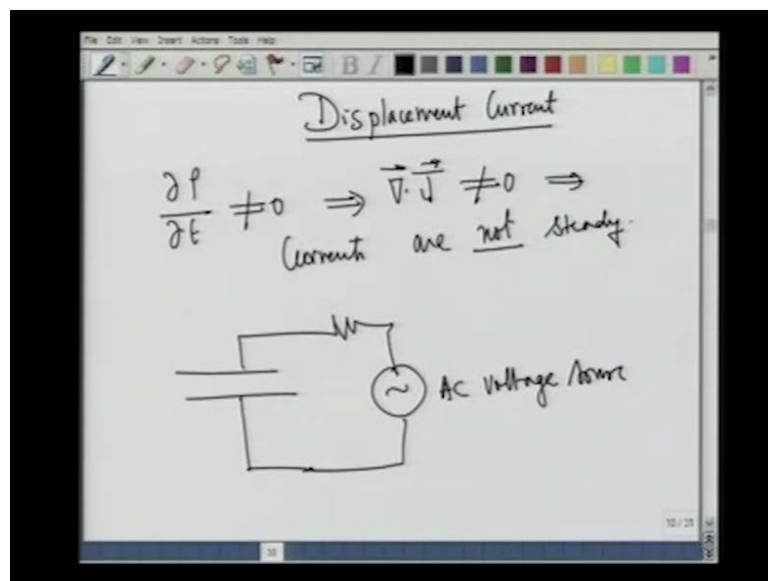 File Edit View Insert Actions Tools Help
B I
Displacement Current
∂ρ/∂t ≠ 0 ⇒ ∇⃗·J⃗ ≠ 0 ⇒
Currents are not steady.
~ AC Voltage source
10 / 31